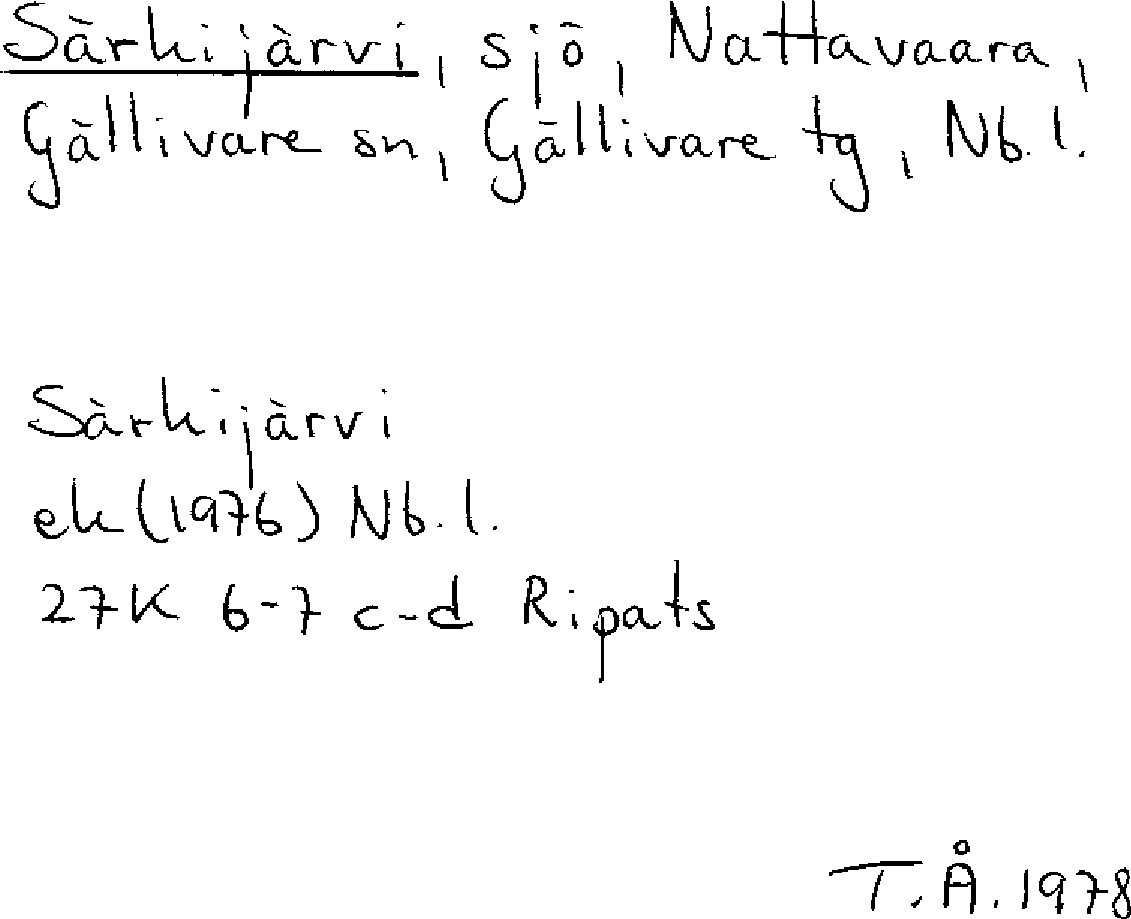 Särkijärvi, sjö, Nattavaara,
Gällivare sn, Gällivare tg, Nb.l.
Särkijärvi
ek (1976) Nb.l.
27K 6-7 c-d Ripats
T.Å. 1978